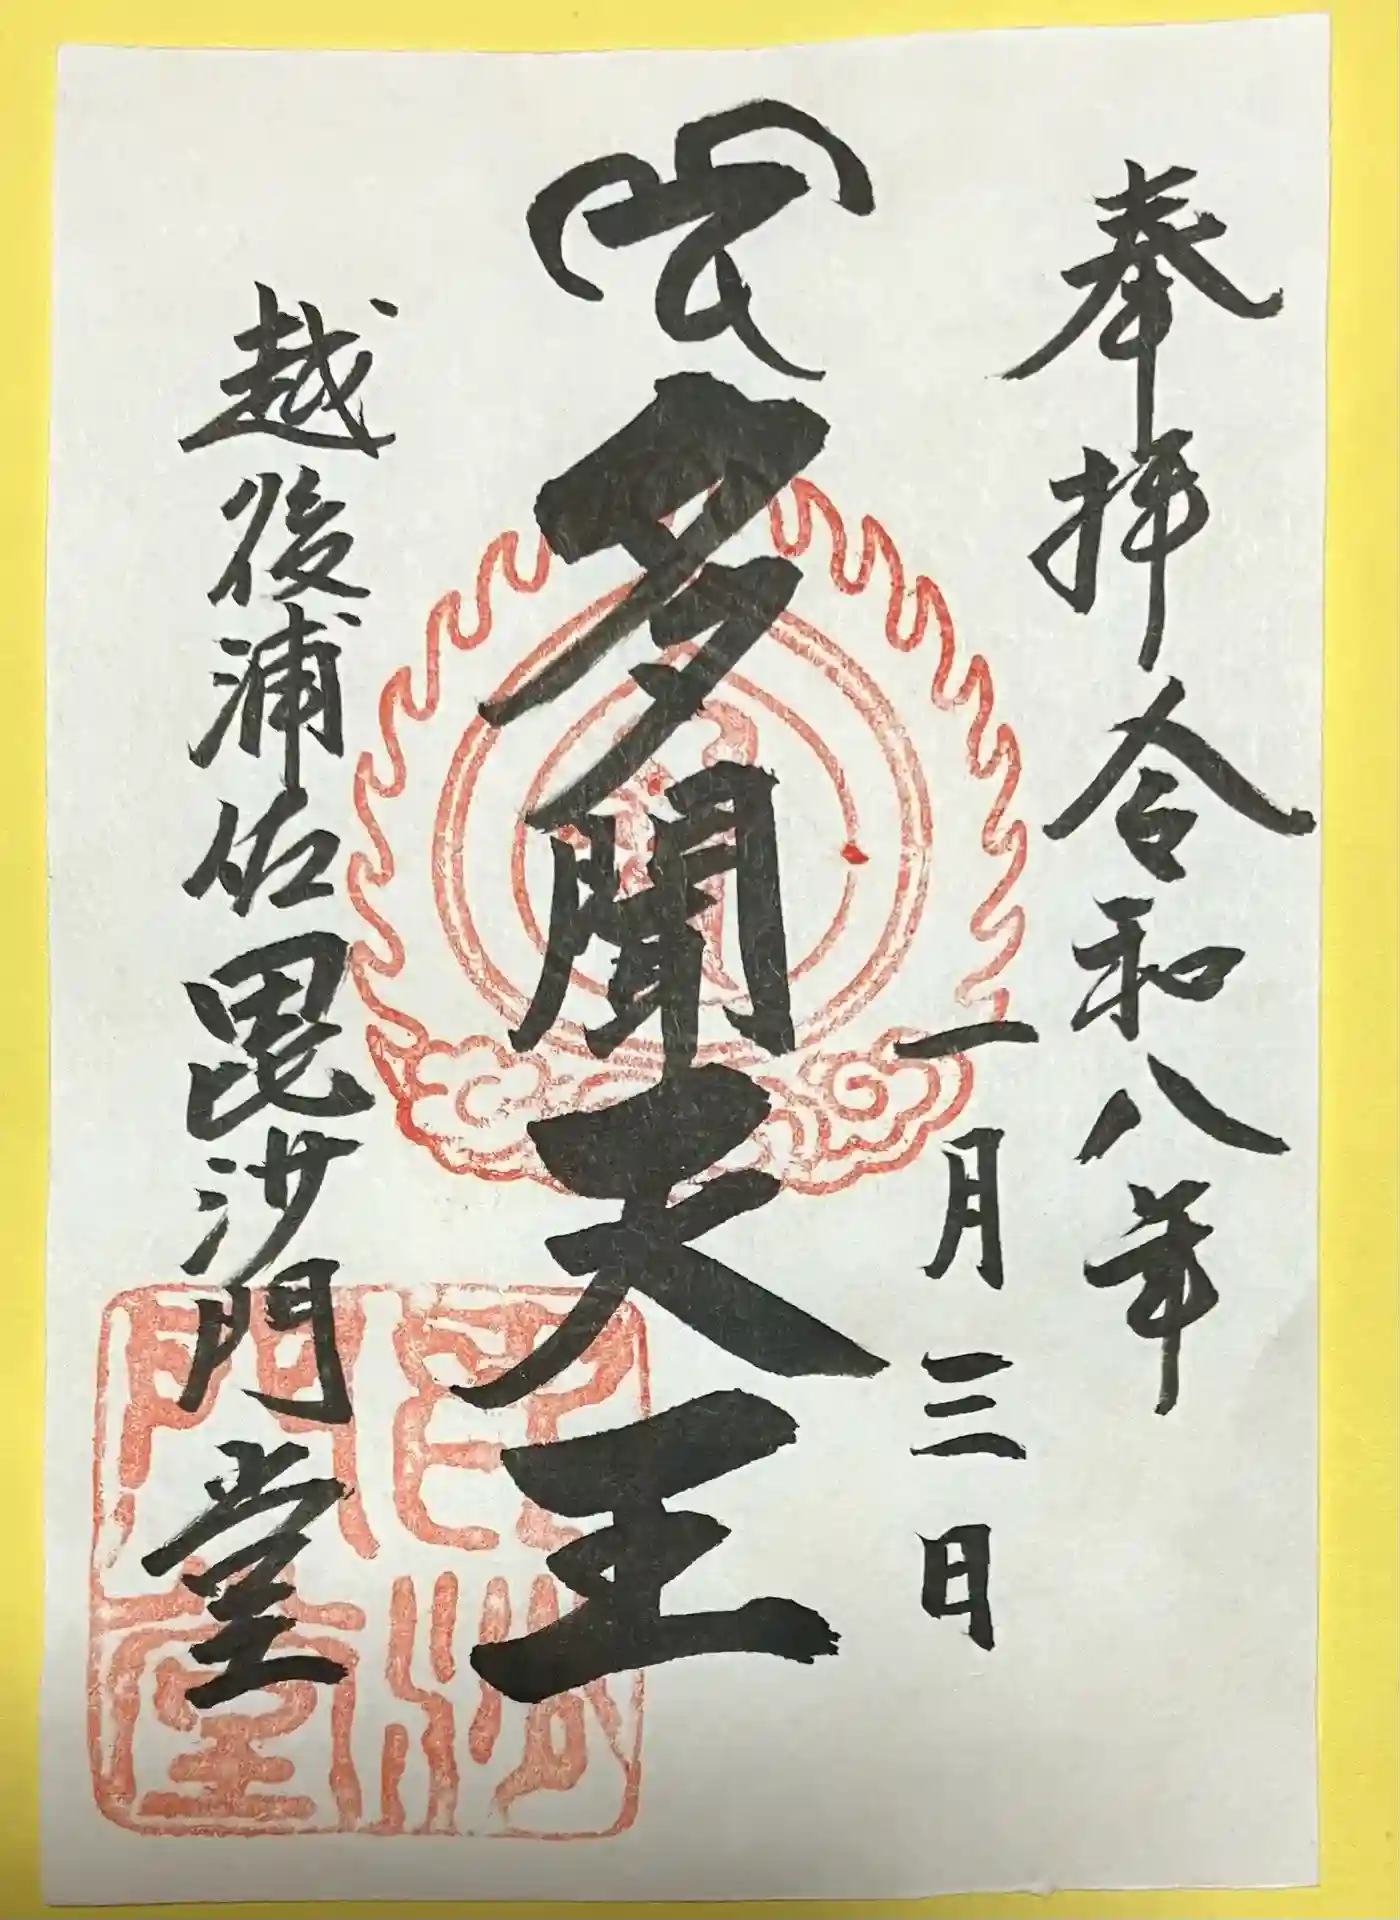 奉拝 令和八年
一月三日
多聞天王
越後浦佐毘沙門堂
毘沙門堂